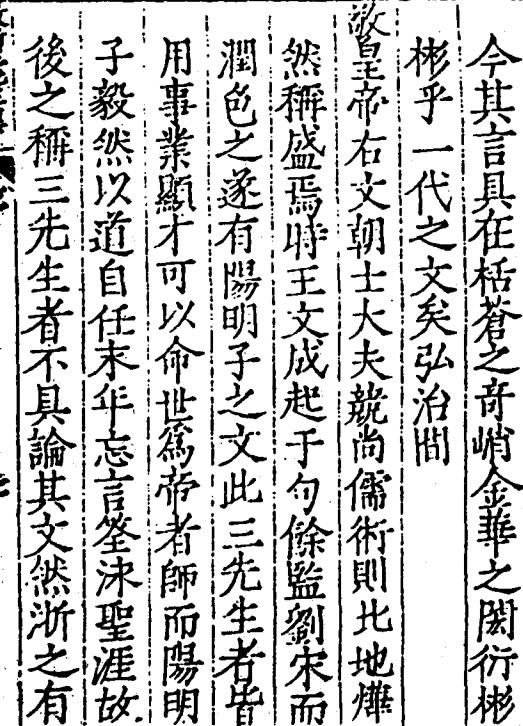 今其言具在栝蒼之奇峭金華之閎衍彬
彬乎一代之文矣弘治間
敬皇帝右文朝士大夫競尚儒術則北地燁
然稱盛焉時王文成起于句餘監劉宋而
潤色之遂有陽明子之文此三先生者皆
用事業顯才可以命世爲帝者師而陽明
子毅然以道自任末年忘言筌沫聖涯故
後之稱三先生者不具論其文然浙之有